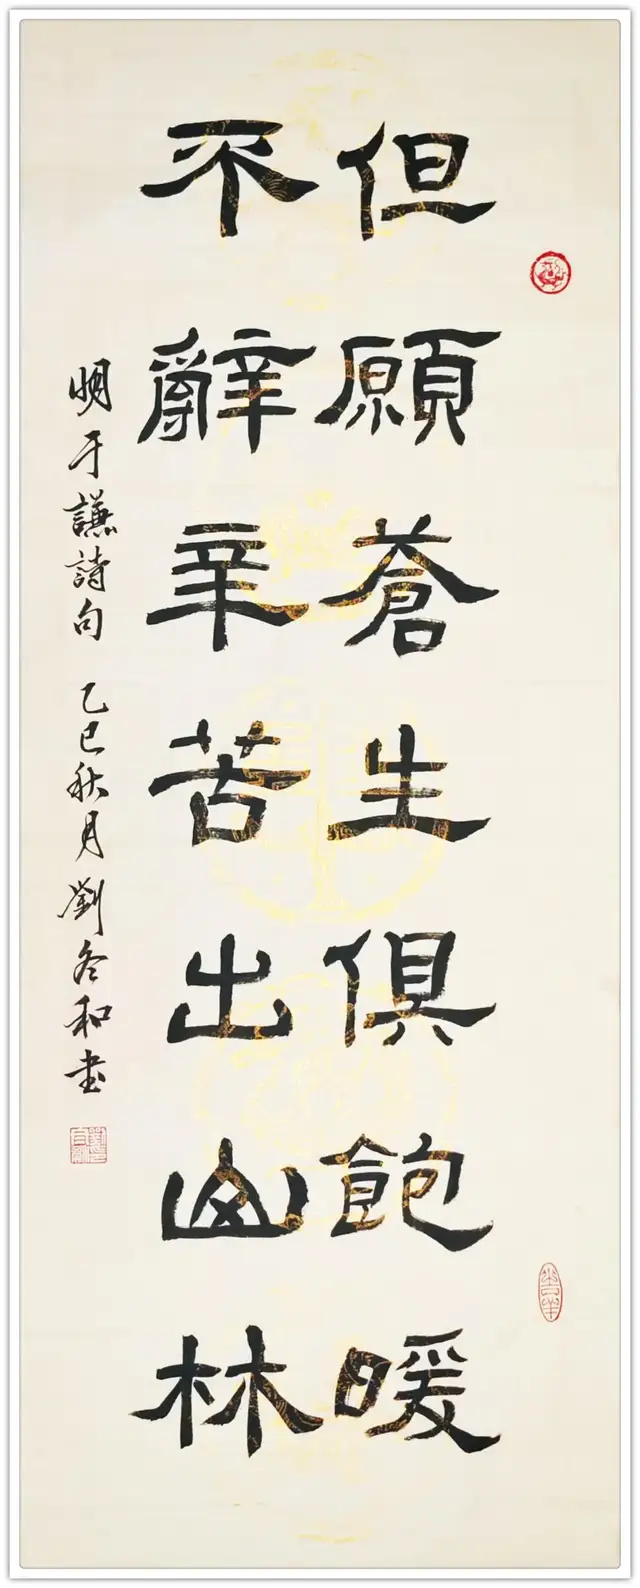 但願蒼生俱飽暖
不辭辛苦出山林
明于謙詩句 乙巳秋月劉冬和书